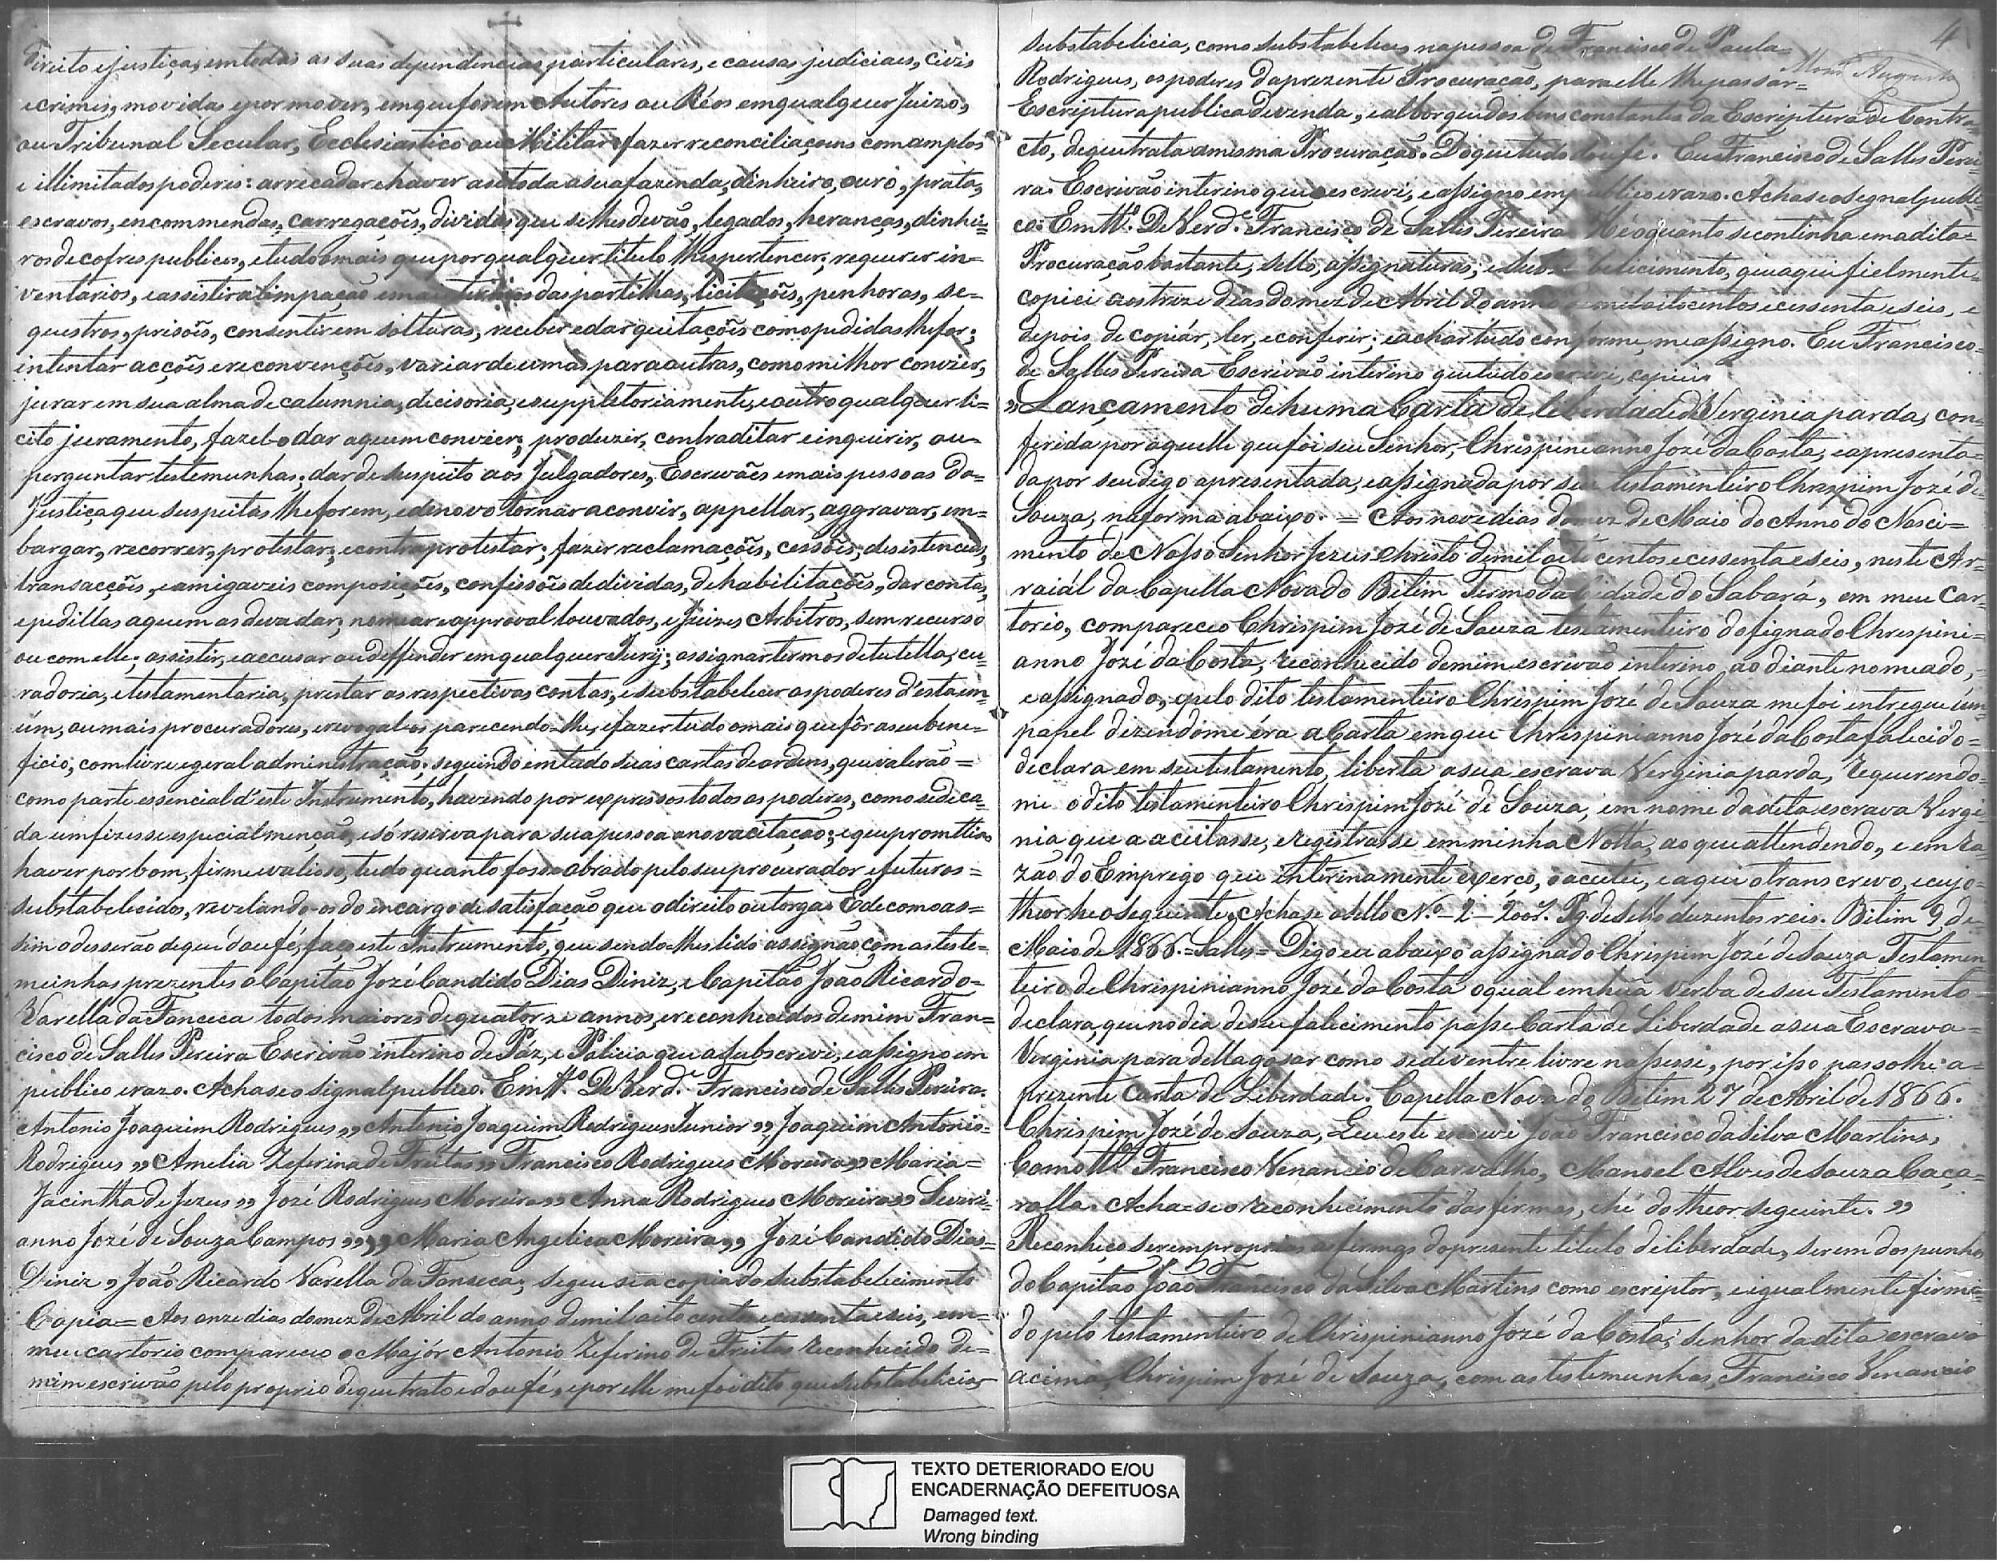 direito e justiça, em todas as suas dependencias particulares, e causas judiciaes, civis
e crimes, movidas e por mover, em que forem Autores ou Réos em qualquer Juizo,
ou Tribunal Secular, Ecclesiastico ou Militar fazer reconciliaçoens com amplos
e illimitados poderes: arrecadar e haver a si toda a sua fazenda, dinheiro, ouro, prata,
escravos, encommendas, carregações, dividas que se lhes devão, legados, heranças, dinhei=
ros de cofres publicos, e tudo o mais que por qualquer titulo lhes pertencer; requerer in=
ventarios, e assistir a limpação das partilhas, licitações, penhoras, se=
questros, prisões, consentir em solturas, receber e dar quitações como pedidas lhe for;
intentar acções e reconvenções, variar de umas para outras, como milhor convier,
jurar em sua alma de calumnia, decisoria, e suppletoriamente, e outro qualquer li=
cito juramento, fazel-o dar a quem convier; produzir, contraditar e inquerir, ou
perguntar testemunhas; dar de suspeito aos Julgadores, Escrivães e mais pessoas da
Justiça que suspeitas lhe forem, e de novo tornar a convir, appellar, aggravar, em=
bargar, recorrer, protestar, e contraprotestar; fazer reclamações, cessões, desistencias,
transacções, e amigaveis composições, confissões de dividas, de habilitações, dar contas,
e pedillas a quem as deva dar; nomear e approval louvados, e Juizes Arbitros, sem recurso
ou com elle; assistir, e accusar ou deffender em qualquer Jury; assignar termos de tutella, cu=
radoria, e testamentaria, prestar as respectivas contas, e substabelecer os poderes d'esta em
úm, ou mais procuradores, e revogal-os parecendo-lhe, e fazer tudo o mais que fôr a seu bene=
ficio, com livre e geral administração; seguindo em tudo suas cartas de ordens, que valerão=
como parte essencial d'este Instrumento, havendo por expressos todos os poderes, como se de ca=
da um fizesse especial menção, e só reserva para sua pessoa a nova citação; e que promettia
haver por bom, firme e valioso, tudo quanto fosse obrado pelo seu procurador e futuros=
substabelecidos, revelando-os do encargo de satisfação que o direito outorga. E de como as=
sim o desserão de que dou fé, faço este Instrumento, que sendo-lhes lido assignão, com as teste=
munhas prezentes o Capitão Jozé Candido Dias Diniz, e Capitão João Ricardo=
Varella da Fonceca todos maiores de quatorze annos, e reconhecidos de mim Fran=
cisco de Salles Pereira Escrivão interino de Páz, e Policia que a subscrevi, e assigno em
publico e razo. Achase o signal publico. Em tto. De Verd.e Francisco de Salles Pereira.
Antonio Joaquim Rodrigues,, Antonio Joaquim Rodrigues Junior,, Joaquim Antonio=
Rodrigues,, Amelia Zeferina de Freitas,, Francisco Rodrigues Moreira,, Maria=
Jacintha de Jezus,, Jozé Rodrigues Moreira,, Anna Rodrigues Moreira,, Severi=
anno Jozé de Souza Campos,,,, Maria Angelica Moreira,, Jozé Candido Dias=
Diniz,, João Ricardo Varella da Fonseca; segue se a copia do substabelecimento
Copia= Aos onze dias do mez de Abril do anno de mil oito centos e cessenta e seis, em=
meu cartorio compareceo o Majór Antonio Zeferino de Freitas reconhecido de=
mim escrivão pelo proprio de que trato e dou fé, e por elle me foi dito que substabelecia
4
substabelicia, como substabelece, na pessoa de Francisco de Paula=
Rodrigues, os poderes da prezente Procuração, para elle lhe passar=
Escriptura publica de venda, e alborque dos bens constantes da Escriptura de Contra=
cto, de que trata a mesma Procuração. Do que tudo dou fé. Eu Francisco de Salles Perei=
ra Escrivão interino que o escrevi, e assigno em publico e razo. Achase o signal publi=
co. Em tto. De Verd.e Francisco de Salles Pereira. Hé o quanto se continha em a dita=
Procuração bastante, sello, assignaturas, e substabelicimento, que aqui fielmente
copiei aos treze dias do mez de Abril do anno de mil oito centos e cessenta e seis, e
depois de copiár, ler, e conferir; e achar tudo conforme, me assigno. Eu Francisco=
de Salles Pereira Escrivão interino que tudo escrevi, copiei
,,Lançamento de huma Carta de liberdade de Verginia parda, con=
ferida por aquelle que foi seu Senhor, Chrispinianno Jozé da Costa, e apresenta=
da por seu digo apresentada, e assignada por seu testamenteiro Chrispim Jozé de
Souza, na forma abaixo.= Aos nove dias do mez de Maio do Anno do Nasci=
mento de Nosso Senhor Jezus Christo de mil oito centos e cessenta e seis, neste Ar=
raiál da Capella Nova do Bétim Termo da Cidade do Sabará, em meu Car=
torio, compareceo Chrispim Jozé de Souza testamenteiro do finado Chrespini=
anno Jozé da Costa, reconhecido de mim escrivão interino, ao diante nomeado,
e assignado, e pelo dito testamenteiro Chrispim Jozé de Souza me foi entregue úm
papel dezendome éra a Carta em que Chrespinianno Jozé da Costa falecido=
declara em seu testamento, liberta a sua escrava Verginia parda, requerendo=
me o dito testamenteiro Chrispim Jozé de Souza, em nome da dita escrava Vergi
nia que a aceitasse, e registrasse em minha Notta, ao que attendendo, e em ra=
zão do Emprego que interinamente exerço, o aceitei, e aqui o transcrevo, e cujo=
theor he o seguinte, Achase o sello N.o 2 - 200r. Pg. de sello duzentos reis. Bitim 9 de
Maio de 1866.= Salles= Digo eu abaixo assignado Chrispim Jozé de Souza Testamen
teiro de Chrispinianno Jozé da Costa o qual em hũa verba de seu Testamento
declara, que no dia de seu falecimento passe Carta de Liberdade a sua Escrava=
Verginia para della gosar como se de ventre livre nassesse, por isso passo lhe a=
prezente Carta de Liberdade. Capella Nova do Betim 27 de Abril de 1866.
Chrispim Jozé de Souza, E eu este escrevi João Francisco da Silva Martins,
Como tta. Francisco Venancio de Carvalho, Manoel Alves de Souza Caça=
rolla. Acha-se o reconhecimento das firmas, e hé do theor seguinte.,,
Reconheço serem proprias as firmas do presente titulo de liberdade, serem dos punho
do Capitão João Francisco da Silva Martins como escriptor, e igualmente firma=
do pelo testamenteiro de Chrispinianno Jozé da Costa, senhor da dita escrava
acima, Chrispim Jozé de Souza, com as testemunhas, Francisco Venancio
TEXTO DETERIORADO E/OU
ENCADERNAÇÃO DEFEITUOSA
Damaged text.
Wrong binding